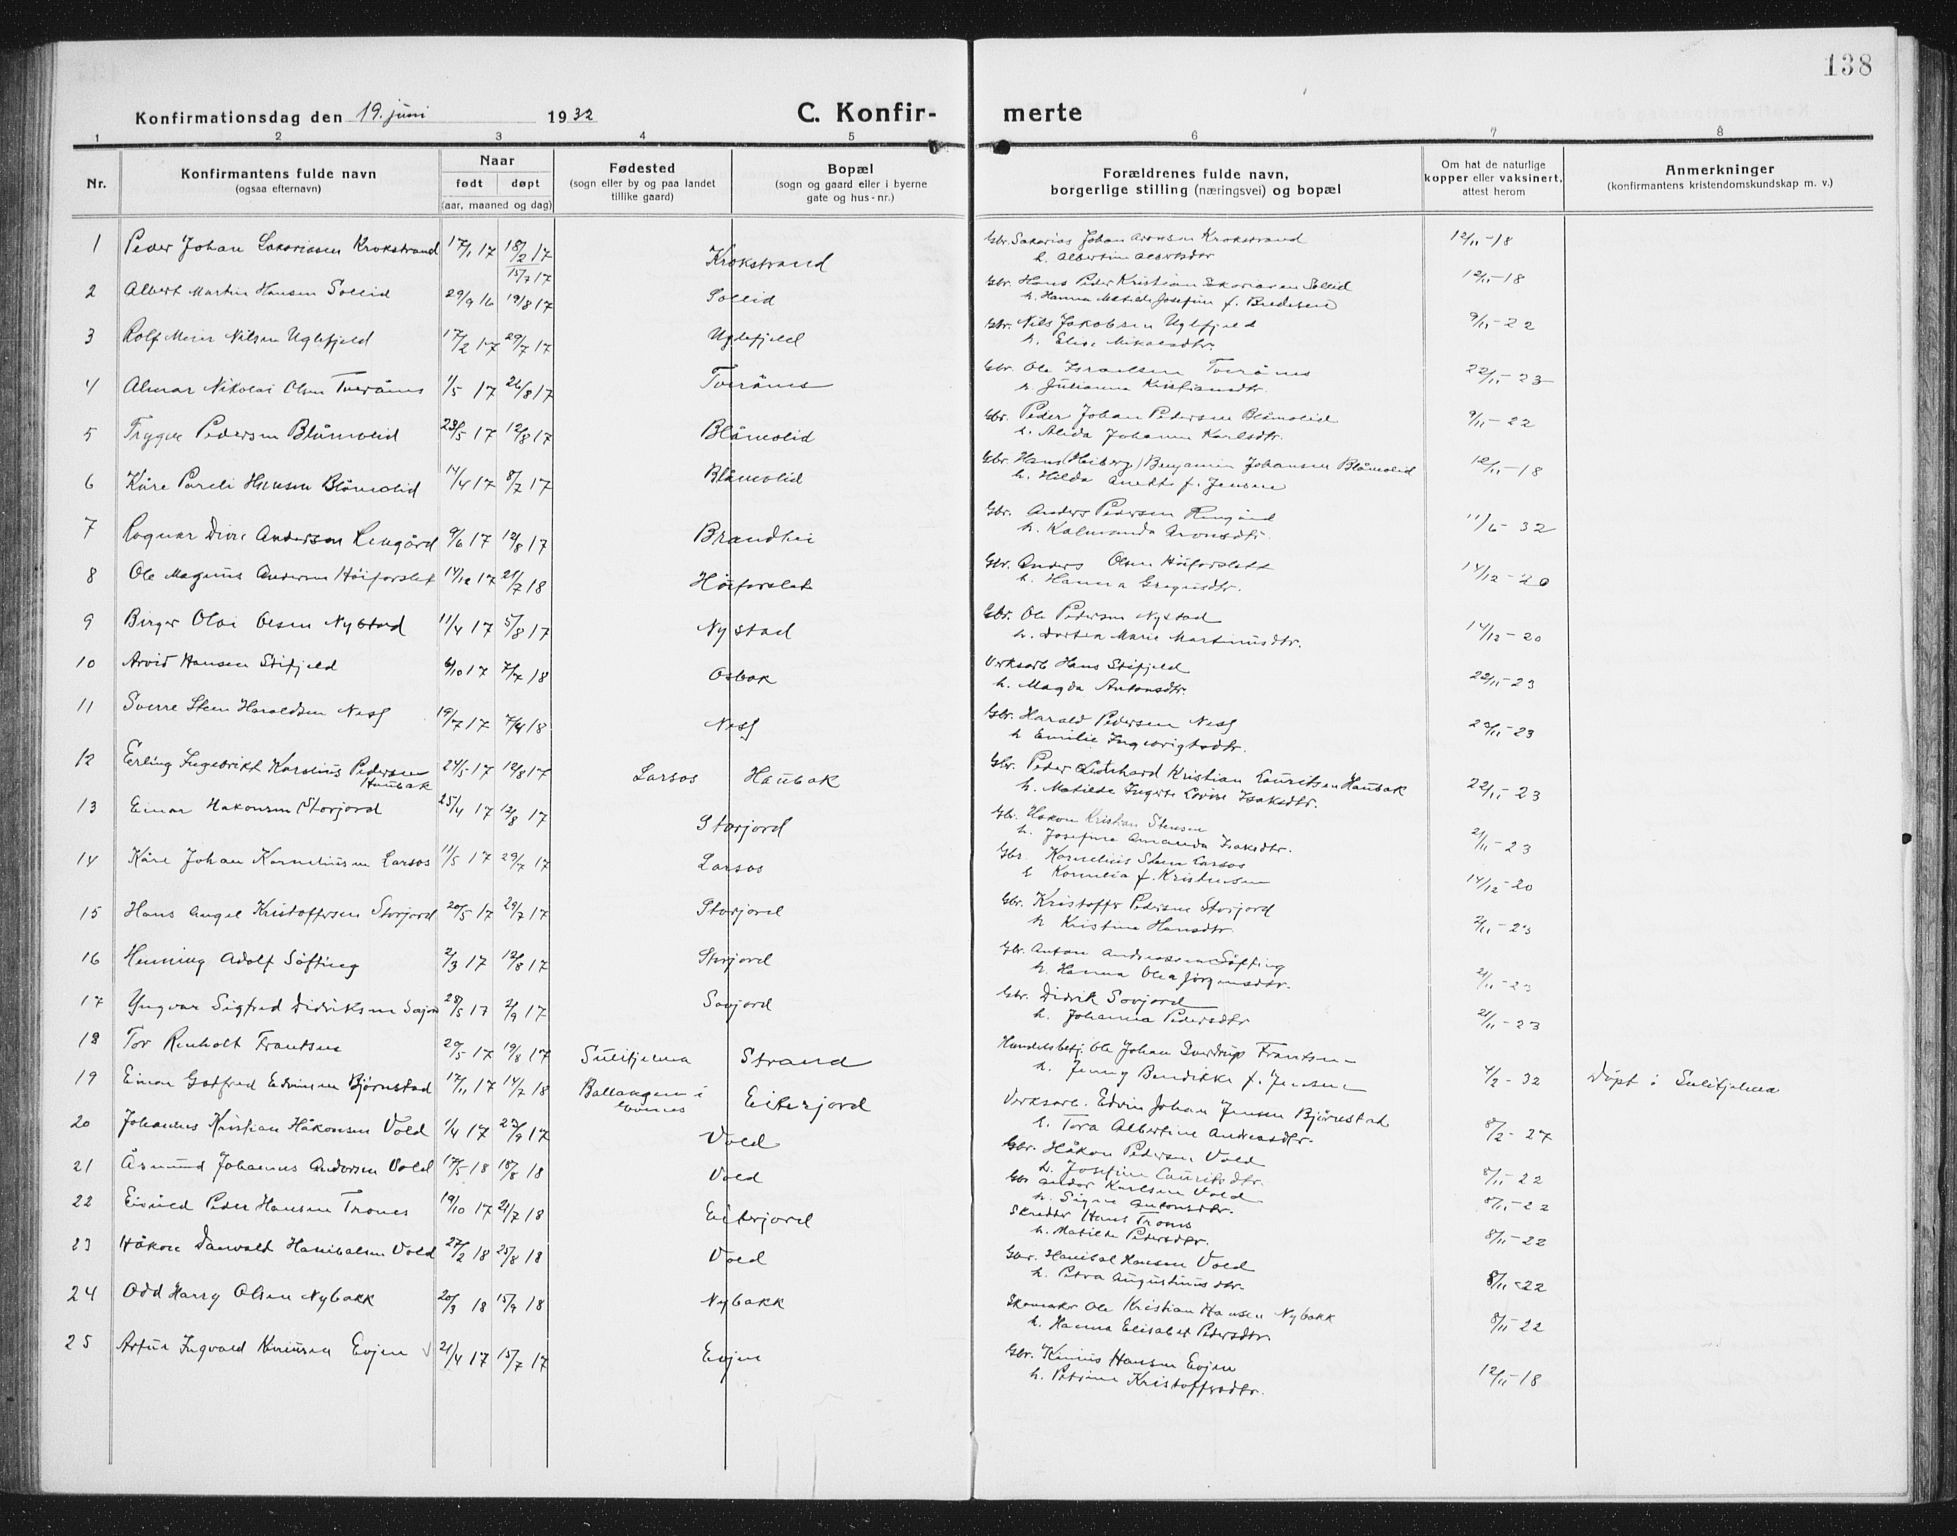 138
Konfirmationsdag den 19. juni 1932 C. Konfirmerte
1 2 3 4 5 6 7 8
Nr. Konfirmantens fulde navn (ogsaa efternavn) Naar født døpt (aar, maaned og dag) Fødested (sogn eller by og paa landet tillike gaard) Bopæl (sogn og gaard eller i byerne gate og hus-nr.) Forældrenes fulde navn, borgerlige stilling (næringsvei) og bopæl Om hat de naturlige kopper eller vaksinert, attest herom Anmerkninger (konfirmantens kristendomskundskap m. v.)
1 Peder Johan Sakariasen Krokstrand 17/1 17 18/2 17 Krokstrand Gbr. Sakarias Johan Aronsen Krokstrand 12/11-18
h. Albertine Albertsdtr
2 Albert Martin Hansen Sollid 29/9 16 15/7 17 19/8 17 Sollid Gbr. Hans Peder Kristian Sakariasen Sollid 12/11-18
h. Hanna Matilde Josefine f. Bredesen
3 Rolf Meier Nilsen Uglefjeld 17/2 17 29/7 17 Uglefjeld Gbr. Nils Jakobsen Uglfjeld 9/11-22
h. Elise Mikalsdtr.
4 Almar Nikolai Olsen Tverånes 1/5 17 26/8 17 Tverånes Gbr. Ole Israelsen Tverånes 22/11-23
h. Julianna Kristiansdtr.
5 Trygve Pedersen Blåmolid 23/5 17 12/8 17 Blåmolid Gbr. Peder Johan Pedersen Blåmolid 9/11-22
h. Alida Johanna Karlsdtr.
6 Kåre Pareli Hansen Blåmolid 14/4 17 8/7 17 Blåmolid Gbr. Hans (Heiberg) Benjamin Johansen Blåmolid 12/11-18
h. Hilda f. Jensen
7 Ragnar Andersen Rengård 9/6 17 12/8 17 Brandhei Gbr. Anders Pedersen Rengård 11/6-32
h. Kalmanda Aronsdtr.
8 Ole Magnus Andersen Höiforslet 14/12 17 21/7 18 Höiforslet Gbr. Anders Olsen Höiforslett 14/12-20
h. Hanna Gregusdtr.
9 Birger Olai Olsen Nystad 11/4 17 5/8 17 Nystad Gbr. Ole Pedersen Nystad 14/12-20
h. Dortea Marie Martinusdtr.
10 Arvid Hansen Stifjeld 6/10 17 7/4 18 Osbak Verksarb Hans Stifjeld 22/11-23
h. Magda Antonsdtr.
11 Sverre Steen Haraldsen Nesf 19/7 17 7/4 18 Nesf Gbr. Harald Pedersen Nesf 22/11-23
h Emilie Ingebrigtsdtr.
12 Erling Ingebrikt Karelius Pedersen Haubak 24/5 17 12/8 17 Larsos Haubak Gbr. Peder Kristian Lauritsen Haubak 22/11-23
h. Matilde Lovise Isaksdtr.
13 Einar Hakonsen Storjord 25/4 17 12/8 17 Storjord Gbr. Håkon Kristian Stensen 21/11-23
h. Josefine Amanda Isaksdtr.
14 Kåre Johan Korneliusen Larsos 11/5 17 29/7 17 Larsos Gbr. Kornelius Steen Larsos 14/12-20
h Kornelia f. Kristensen
15 Hans Angel Kristoffersen Storjord 20/5 17 29/7 17 Storjord Gbr. Kristoffer Pedersen Storjord 21/11-23
h Kristine Hansdtr.
16 Henning Adolf Söfting 2/3 17 12/8 17 Storjord Gbr. Anton Andreassen Söfting 21/11-23
h. Hanna Olea Jörgensdtr.
17 Yngvar Sigfred Didriksen Sojord 28/5 17 2/9 17 Sovjord Gbr. Didrik Sovjord 21/11-23
h. Johanna Pedersdtr
18 Tor Reinholt Frantsen 29/5 17 19/8 17 Sulitjelma Strand Handelsbetj. Ole Johan Sverdrup Frantsen 4/2-32 Döpt i Sulitjelma
h. Jenny Bendikke f. Jensen
19 Einar Gotfred Edvinsen Bjørnstad 17/11 17 14/7 18 Ballangen i Evenes Eiterjord Verksarb. Edvin Johan Jensen Bjørnstad 8/2-27
h. Tora Albertine Andreasdtr.
20 Johannes Kristian Håkonsen Vold 1/4 17 27/9 17 Vold Gbr. Håkon Pedersen Vold 8/11-22
h. Josefine Lauritsdtr.
21 Åsmund Johannes Andorsen Vold 17/5 18 18/8 18 Vold Gbr Andor Karlsen Vold 8/11-22
h. Signe Antonsdtr.
22 Eivind Peder Hansen Trones 19/10 17 21/7 18 Eiterjord Skredder Hans Trones 8/11-22
h. Matilde Pedersdtr.
23 Håkon Danvald Hanibalsen Vold 27/2 18 25/8 18 Vold Gbr. Hanibal Hansen Vold 8/11-22
h. Petra Augustinusdtr.
24 Odd Harry Olsen Nybakk 20/3 18 15/9 18 Nybakk Skomaker Ole Kristian Hansen Nybakk 8/11-22
h. Hanna Elisabet Pedersdtr.
25 Artur Ingvald Kiniusen Evjen 21/4 17 15/7 17 Evjen Gbr. Kinius Hansen Evjen 12/11-18
h. Petrine Kristoffersdtr.